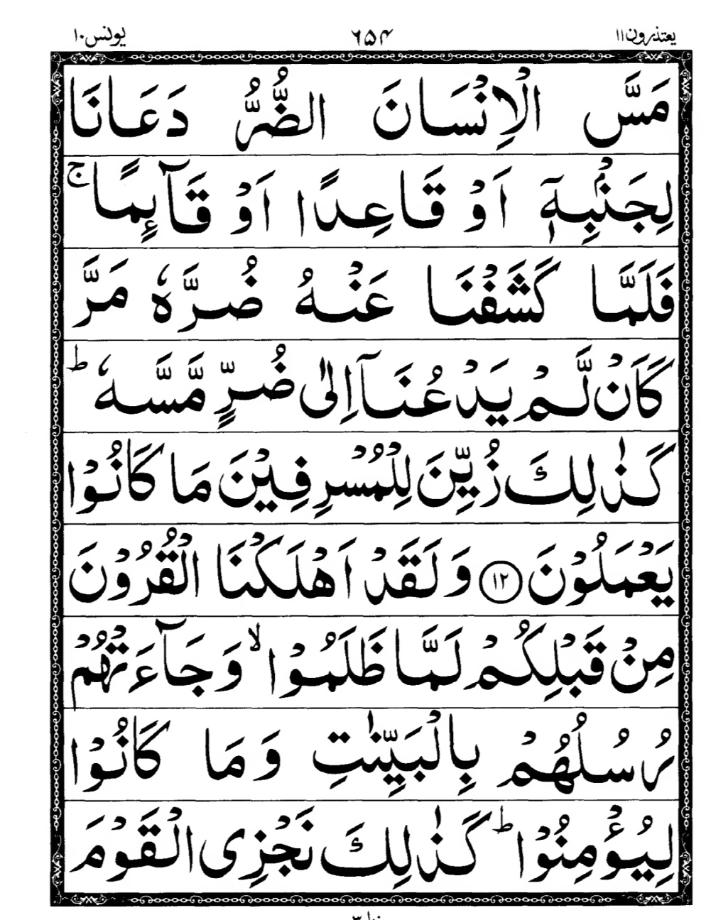 يعتذرون ١١ ٦٥٤ يونس ١٠
مَسَّ الْاِنْسَانَ الضُّرُّ دَعَانَا
لِجَنْۢبِهٖۤ اَوْ قَاعِدًا اَوْ قَآىِٕمًا ۚ
فَلَمَّا كَشَفْنَا عَنْهُ ضُرَّهٗ مَرَّ
كَاَنْ لَّمْ يَدْعُنَاۤ اِلٰى ضُرٍّ مَّسَّهٗ ؕ
كَذٰلِكَ زُيِّنَ لِلْمُسْرِفِيْنَ مَا كَانُوْا
يَعْمَلُوْنَ ۝۱۲ وَلَقَدْ اَهْلَكْنَا الْقُرُوْنَ
مِنْ قَبْلِكُمْ لَمَّا ظَلَمُوْا ۙ وَجَآءَتْهُمْ
رُسُلُهُمْ بِالْبَيِّنٰتِ وَمَا كَانُوْا
لِيُؤْمِنُوْا ؕ كَذٰلِكَ نَجْزِى الْقَوْمَ